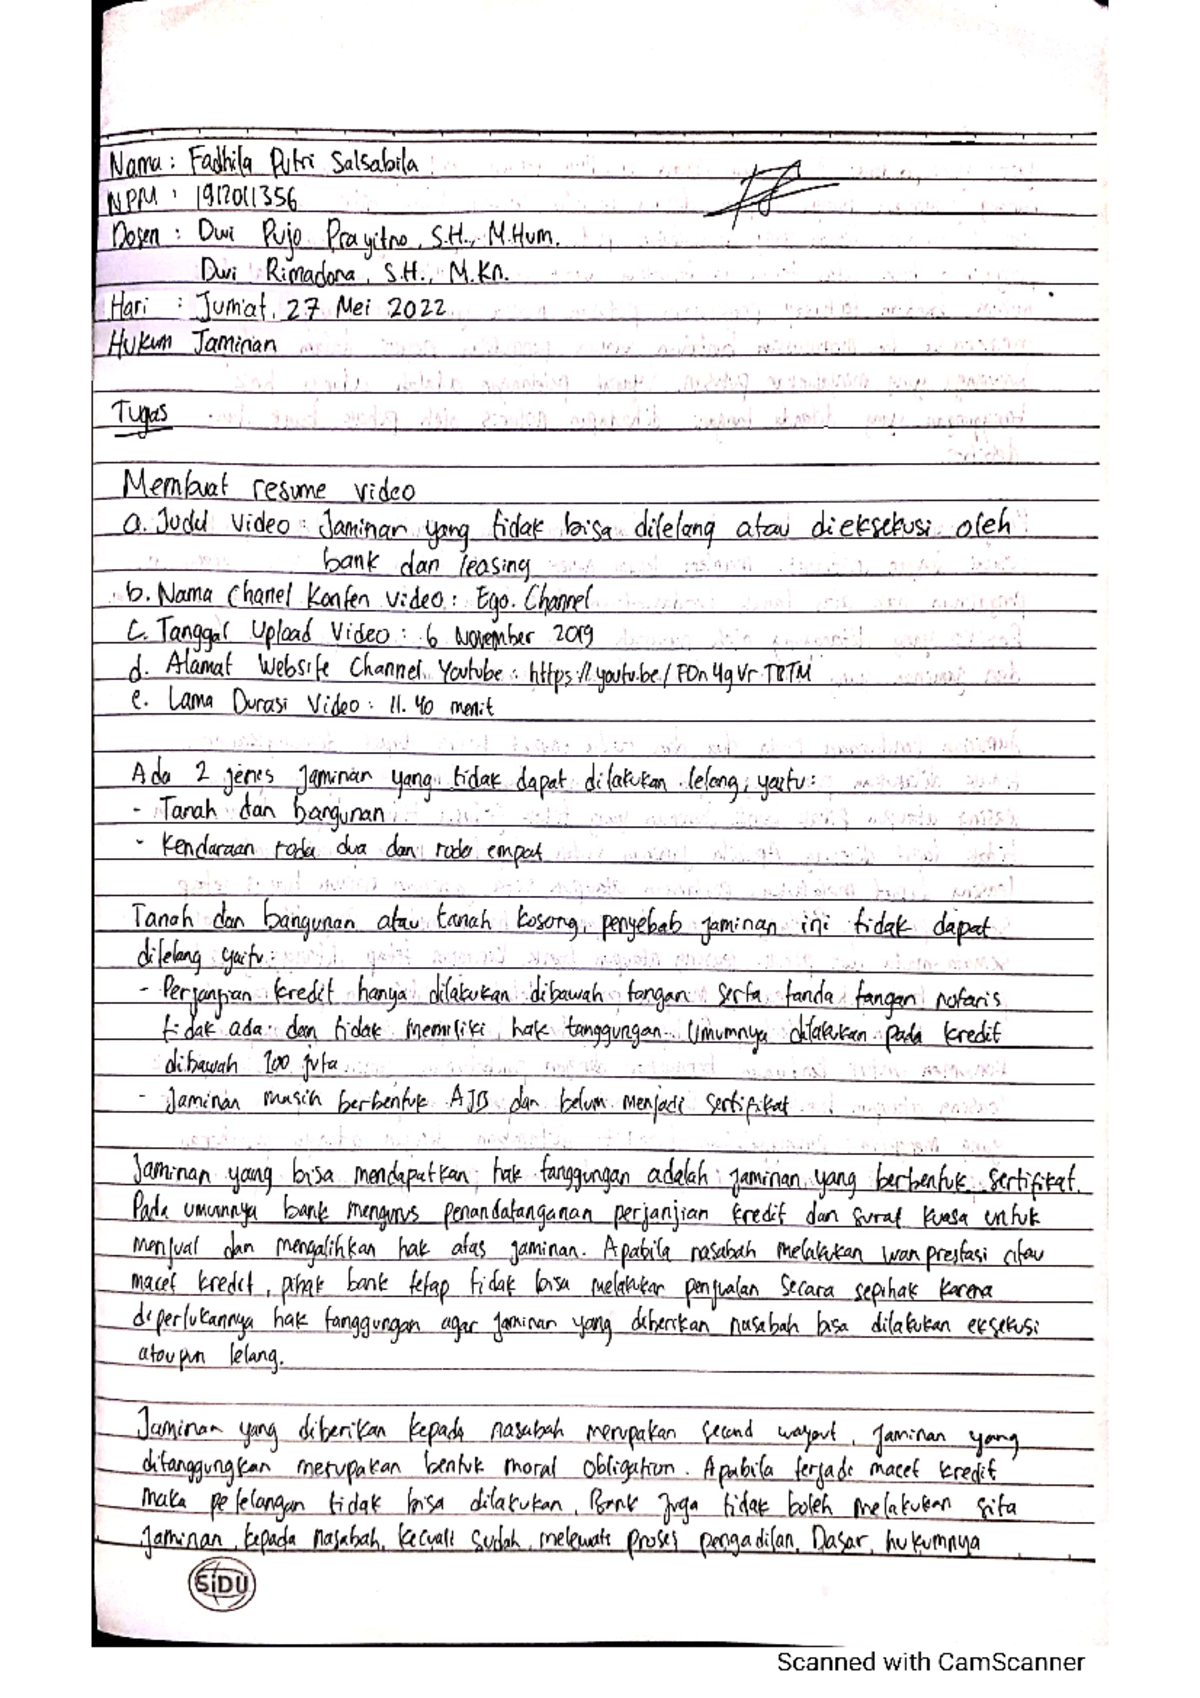 Nama : Fadhila Putri Salsabila
NPM : 1912011356
Dosen : Dwi Pujo Prayitno, S.H., M.Hum.
Dwi Rimadona, S.H., M.Kn.
Hari : Jum'at, 27 Mei 2022
Hukum Jaminan
Tugas
Membuat resume video
a. Judul Video : Jaminan yang tidak bisa dilelang atau dieksekusi oleh
bank dan leasing
b. Nama Chanel Konten Video : Ego. Channel
c. Tanggal Upload Video : 6 November 2019
d. Alamat Website Channel Youtube : https://youtu.be/
e. Lama Durasi Video : 11.40 menit
Ada 2 jenis jaminan yang tidak dapat dilakukan lelang, yaitu :
- Tanah dan bangunan
- Kendaraan roda dua dan roda empat
Tanah dan bangunan atau tanah kosong, penyebab jaminan ini tidak dapat
dilelang yaitu :
- Perjanjian kredit hanya dilakukan dibawah tangan serta tanda tangan notaris
tidak ada dan tidak memiliki hak tanggungan. Umumnya dilakukan pada kredit
dibawah 100 juta
- Jaminan masih berbentuk AJB dan belum menjadi sertifikat
Jaminan yang bisa mendapatkan hak tanggungan adalah jaminan yang berbentuk sertifikat.
Pada umumnya bank mengurus penandatanganan perjanjian kredit dan surat kuasa untuk
menjual dan mengalihkan hak atas jaminan. Apabila nasabah melakukan wanprestasi atau
macet kredit, pihak bank tetap tidak bisa melakukan penjualan secara sepihak karena
diperlukannya hak tanggungan agar jaminan yang diberikan nasabah bisa dilakukan eksekusi
ataupun lelang.
Jaminan yang diberikan kepada nasabah merupakan second wayout, jaminan yang
ditanggungkan merupakan bentuk moral obligation. Apabila terjadi macet kredit
maka pelelangan tidak bisa dilakukan, Bank juga tidak boleh melakukan sita
jaminan kepada nasabah, kecuali sudah melewati proses pengadilan. Dasar hukumnya
SIDU
Scanned with CamScanner